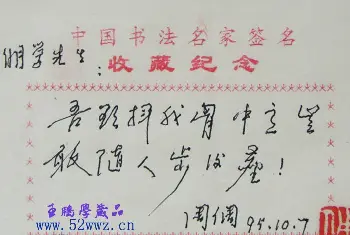 中国书法名家签名
收藏纪念
明学先生：
吾欲拜我胃中立岂
敢随人步后尘！
周倜 95.10.7
鱼鹏学藏品
www.52wwz.cn